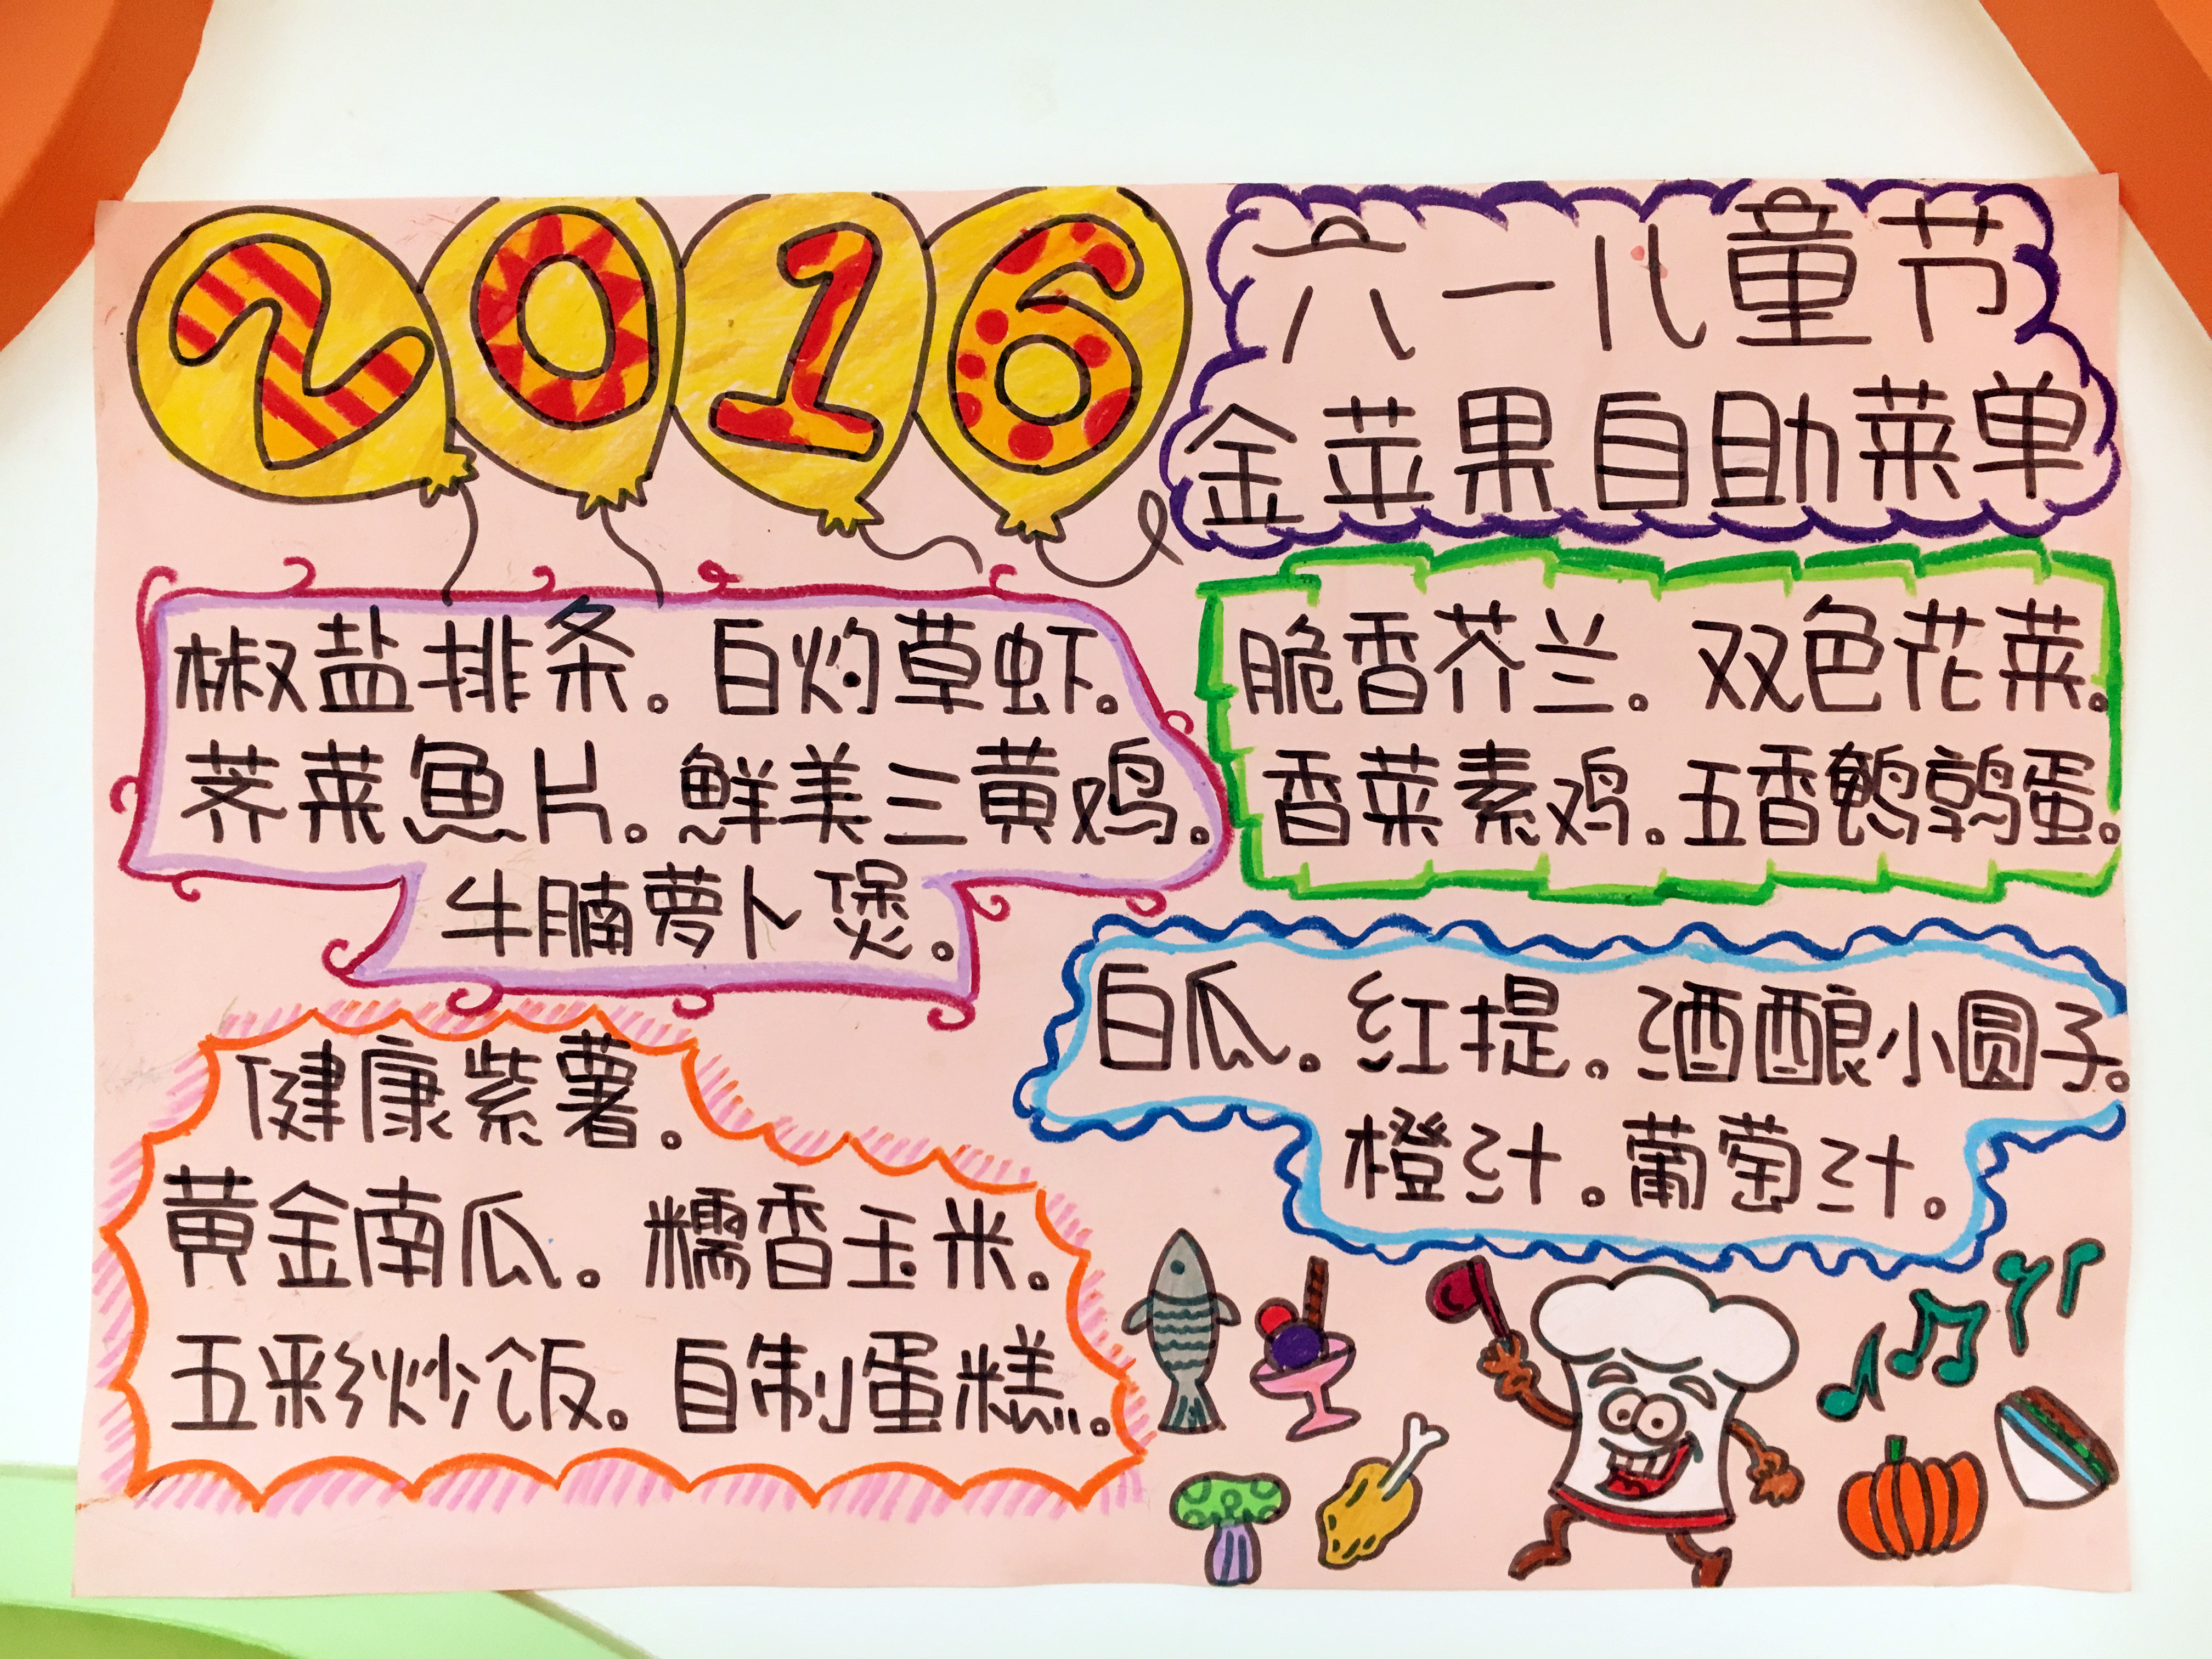 2016
六一儿童节
金苹果自助菜单
椒盐排条。白灼草虾。
荠菜鱼片。鲜美三黄鸡。
牛腩萝卜煲。
脆香芥兰。双色花菜。
香菜素鸡。五香鹌鹑蛋。
白瓜。红提。酒酿小圆子。
橙汁。葡萄汁。
健康紫薯。
黄金南瓜。糯香玉米。
五彩炒饭。自制蛋糕。